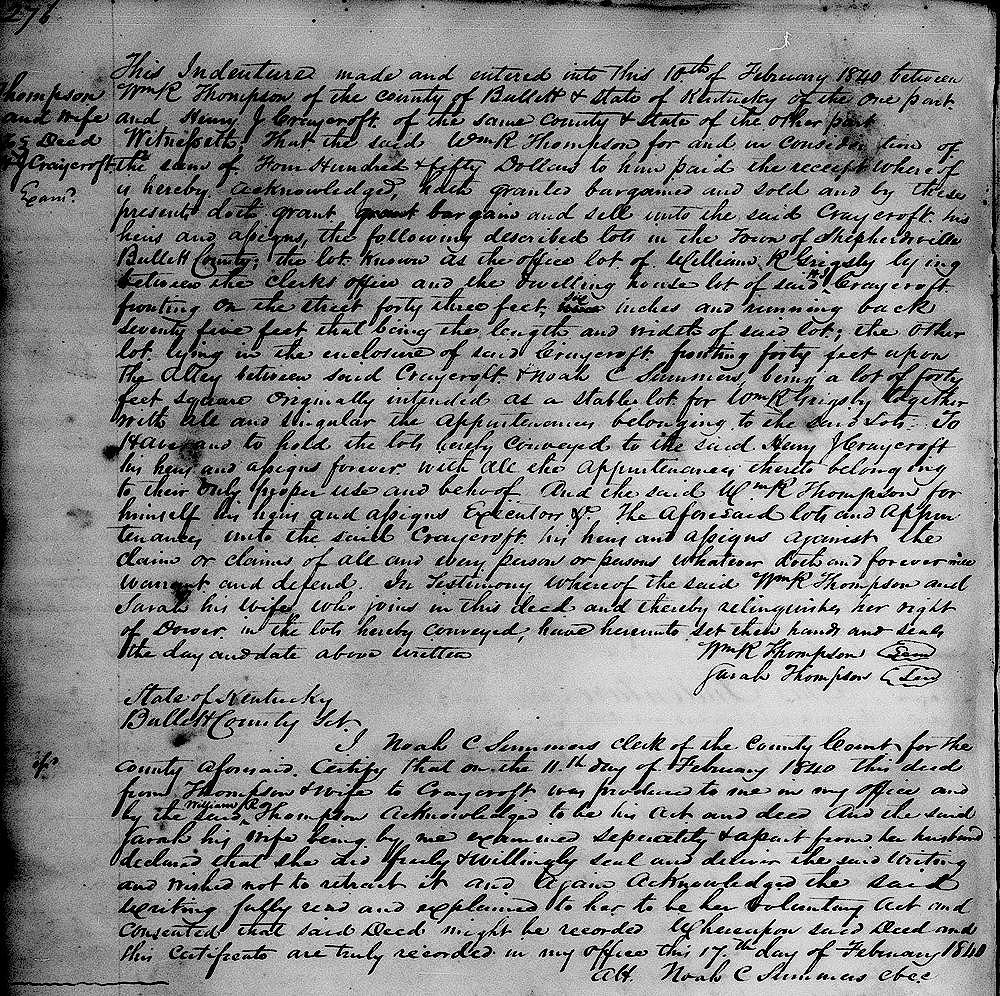 276
Thompson
and Wife
to } Deed
H J Craycroft
Exam.d
This Indenture made and entered into this 10th of February 1840 between
Wm R Thompson of the county of Bullett & State of Kentucky of the one part
and Henry J Craycroft of the same county & State of the other part
Witnesseth, That the said Wm R Thompson for and in consideration of
the sum of Four Hundred & fifty Dollars to him paid the receipt whereof
is hereby acknowledged, hath granted bargained and sold and by these
presents doth grant bargain and sell unto the said Craycroft his
heirs and assigns, the following described lots in the Town of Shepherdsville
Bullett County; the lot known as the office lot of William R Grigsby lying
between the Clerks office and the dwelling house lot of said H.J. Craycroft
fronting on the street forty three feet, six inches and running back
seventy five feet that being the length and width of said lot; the other
lot lying in the enclosure of said Craycroft fronting forty feet upon
the Alley between said Craycroft & Noah C Summers, being a lot of forty
feet square originally intended as a stable lot for Wm R Grigsby together
with all and singular the appurtenances belonging to the said Lots. To
Have and to hold the lots hereby conveyed to the said Henry J Craycroft
his heirs and assigns forever with all the appurtenances thereto belonging
to their only proper use and behoof And the said Wm R Thompson for
himself his heirs and assigns Executors &c The Aforesaid lots and Appur
tenances unto the said Craycroft his heirs and assigns against the
claim or claims of all and every person or persons whatever doth and forever will
warrant and defend. In Testimony whereof the said Wm R Thompson and
Sarah his Wife, who joins in this deed and thereby relinquishes her right
of Dower in the lots hereby conveyed, have hereunto set their hands and seals
the day and date above written
Wm R Thompson (Seal)
Sarah Thompson (Seal)
State of Kentucky
Bullett County Sct.
I Noah C Summers clerk of the County Court for the
County aforesaid. Certify that on the 11th day of February 1840 this deed
from Thompson & wife to Craycroft was produced to me in my office and
by the said William R Thompson Acknowledged to be his Act and deed And the said
Sarah his wife being by me examined seperately & apart from her husband
declared that she did freely & willingly seal and deliver the said writing
and wished not to retract it and again acknowledged the said
writing fully read and explained to her to be her voluntary act and
Consented that said Deed might be recorded Whereupon said Deed and
this Certificate are truly recorded in my office this 17th day of February 1840
Att. Noah C Summers cbcc